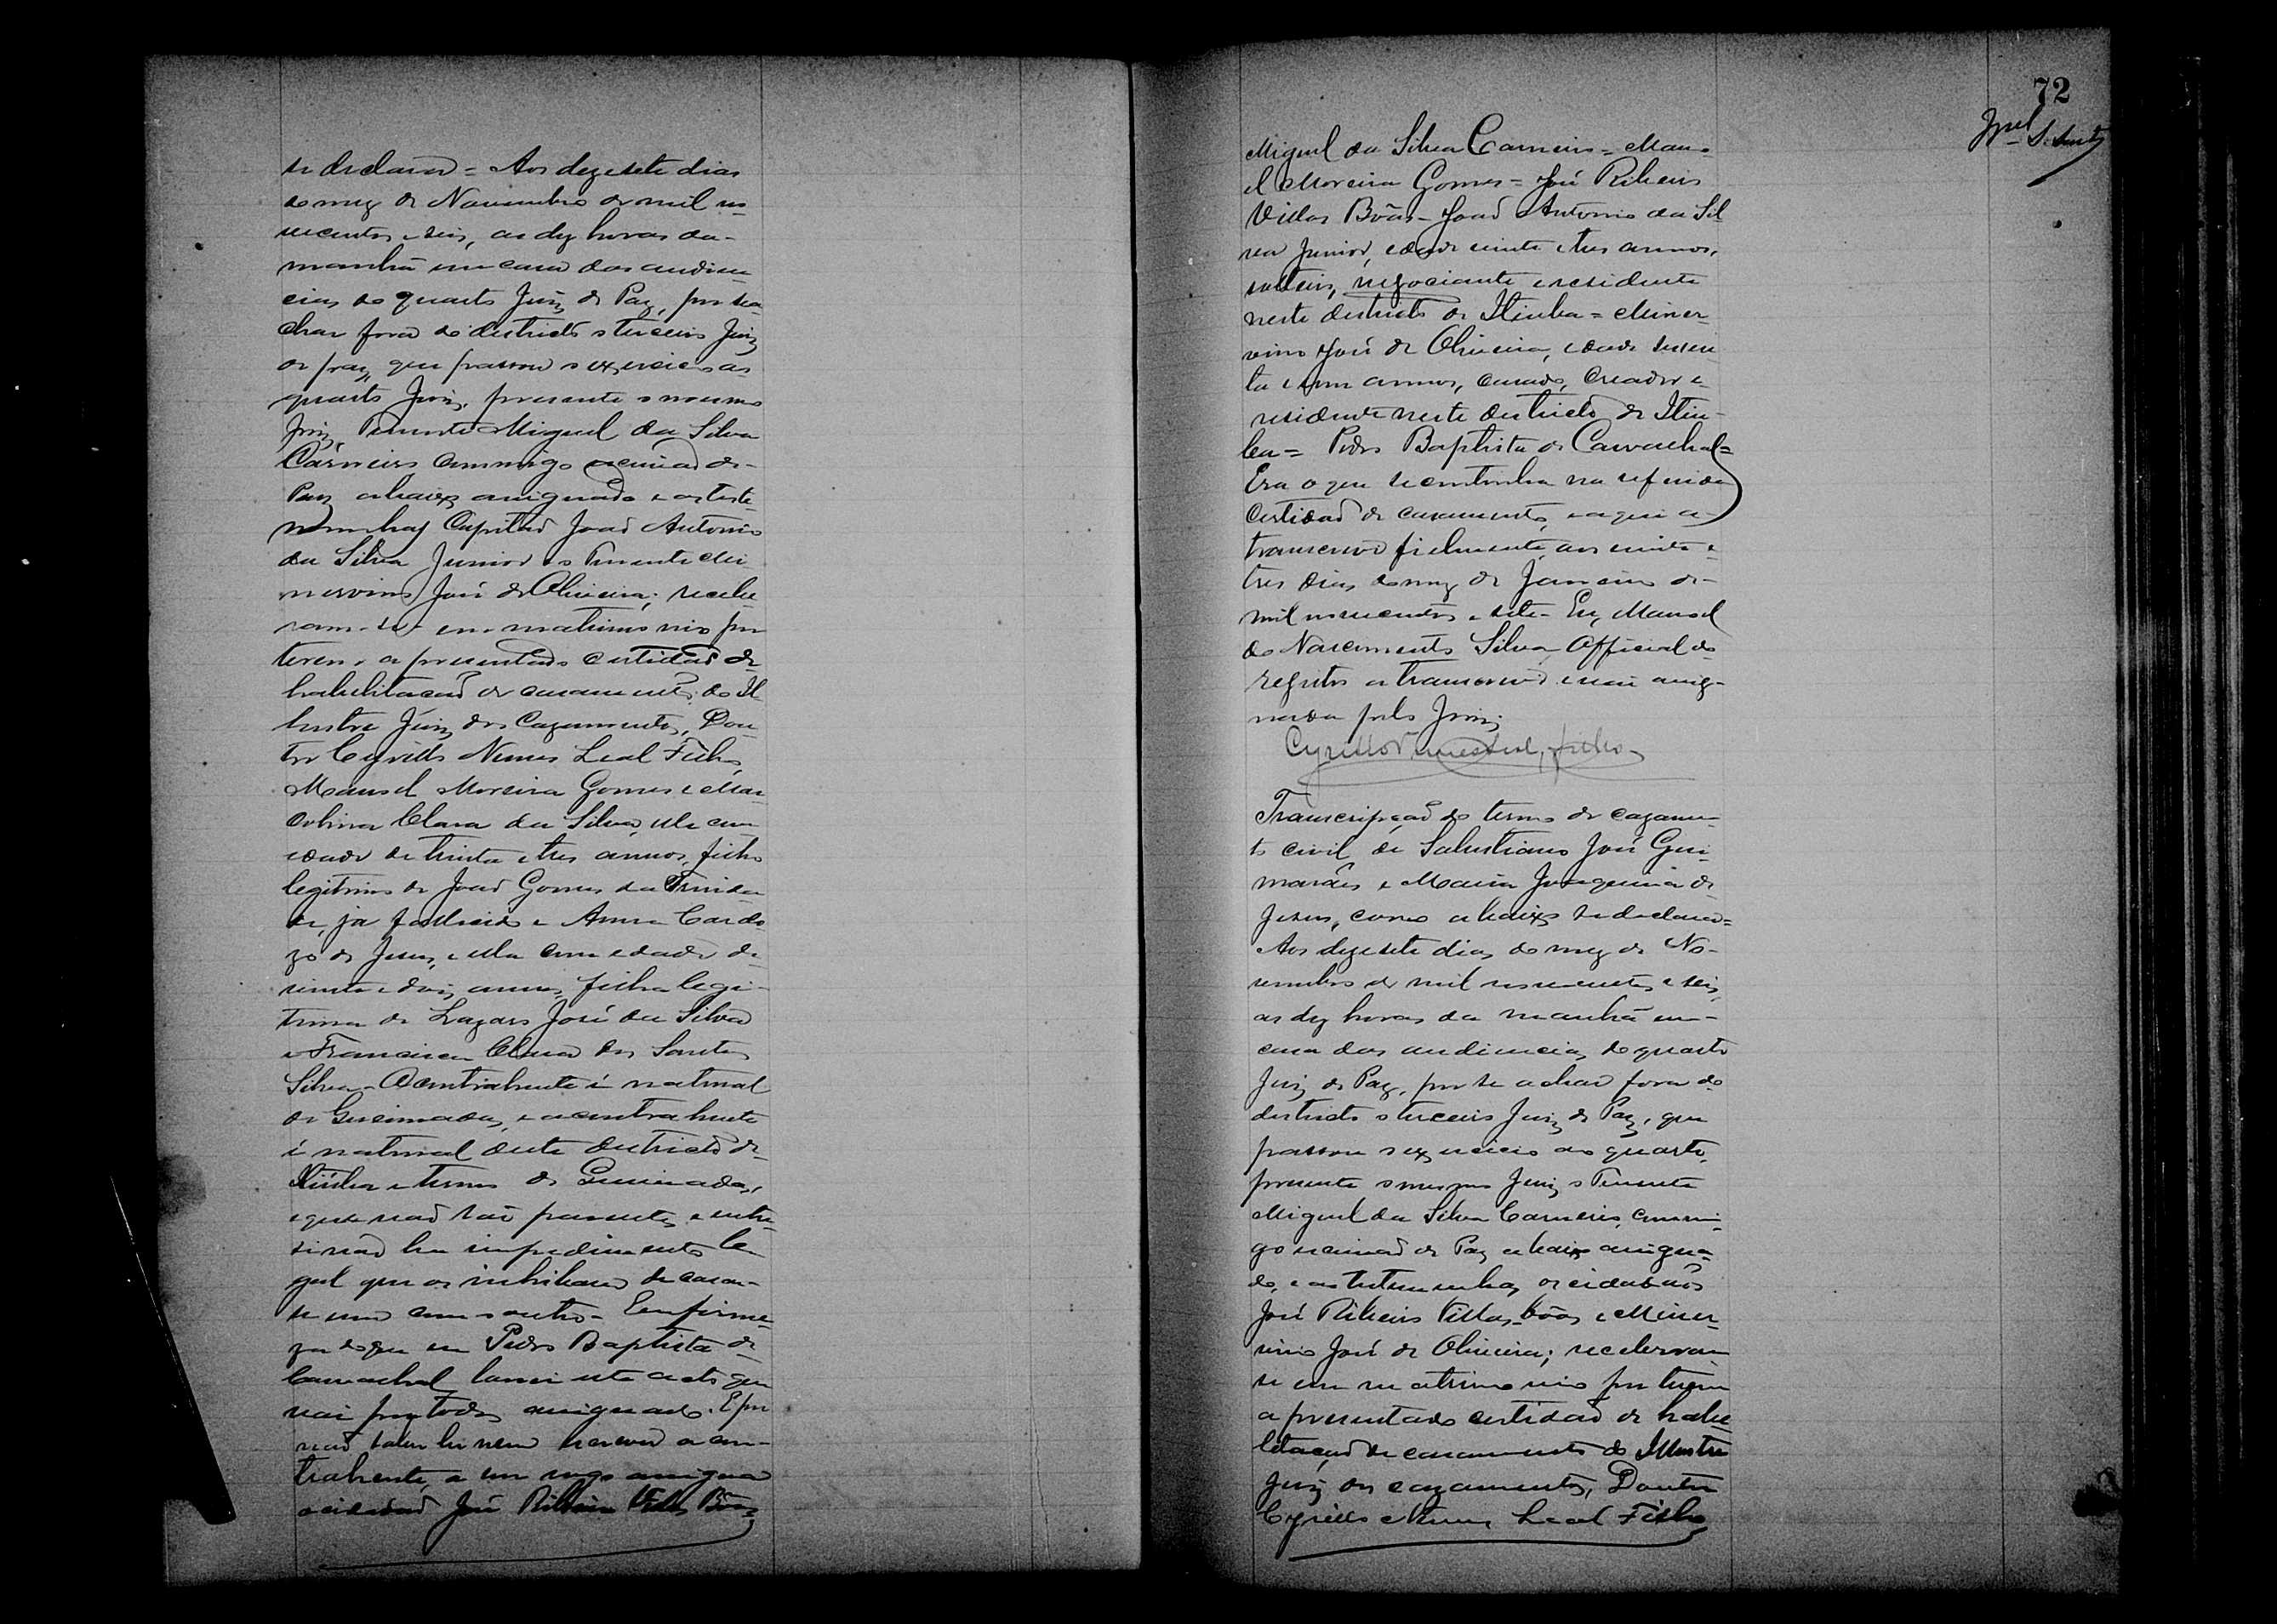 se declara = Aos dezesete dias
do mez de Novembro de mil no-
vecentos e seis, as dez horas da-
manhã em casa das audien
cias do quarto Juiz de Paz, por se a-
char fora do districto o terceiro Juiz
de paz, que passou o exercicio ao
quarto Juiz, presente o mesmo
Juiz, Tenente Miguel da Silva
Carneiro commigo escrivão de-
Paz abaixo assignado e as teste-
munhas Capitão João Antonio
da Silva Junior e o Tenente Mi
nervino José de Oliveira; recebe
ram-se em matrimonio por
terem apresentado certidão de
habilitação de casamento do Il
lustre Juiz dos Cazamentos, Dou
tor Cyrillo Nunes Leal Filho,
Manoel Moreira Gomes e Mar
colina Clara da Silva, elle com
edade de trinta e tres annos, filho
legitimo de João Gomes da Trinda
de, já fallecido e Anna Cardo
zo de Jesus, e ella com edade de
vinte e dois annos, filha legi-
tima de Lazaro José da Silva
e Francisca Clara dos Santos
Silva - O contrahente é natural
de Queimadas, e a contrahente
é natural deste districto de
Itiúba e termo de Queimadas,
e que não são parentes, e entre
si não ha impedimento le
gal que os inhibam de casar-
se um com o outro - E em firme-
za do que eu Pedro Baptista de
Carvachal lavrei este acto que
vai por todos assignado. E por
não saber ler nem escrever a con-
trahente, a seu rogo assigna
o cidadão José Ribeiro Villas Bôas =
72
Miguel da Silva Carneiro = Mano-
el Moreira Gomes = José Ribeiro
Villas Bôas - João Antonio da Sil
va Junior, edade vinte e tres annos,
solteiro, negociante e residente
neste districto de Itiuba = Miner-
vino José de Oliveira, edade sessen
ta e um annos, casado, creador e
residente neste districto de Itiu-
ba = Pedro Baptista de Carvachal =
Era o que se continha na referida
certidão de casamento, e aqui a
transcrevo fielmente, aos vinte e
tres dias do mez de Janeiro de-
mil novecentos e sete - Eu, Manoel
do Nascimento Silva Official do
registro a transcrevi e vai assig-
nada pelo Juiz
Cyrillo Nunes Leal, filho
Transcripção do termo de cazamen
to civil de Salustiano José Gui
marães e Maria Joaquina de
Jesus, como abaixo se declara =
Aos dezesete dias do mez de No-
vembro de mil novecentos e seis,
as dez horas da manhã em-
casa das audiencias do quarto
Juiz de Paz, por se achar fora do
districto o terceiro Juiz de Paz, que
passou o exercicio ao quarto,
presente o mesmo Juiz o Tenente
Miguel da Silva Carneiro, commi-
go escrivão de Paz abaixo assigna-
do, e as testemunhas, os cidadãos
José Ribeiro Villas-bôas e Miner-
vino José de Oliveira; receberam
se em matrimonio por terem
apresentado certidão de habi
litação de casamento do Illustre
Juiz dos cazamentos, Doutor
Cyrillo Nunes Leal Filho